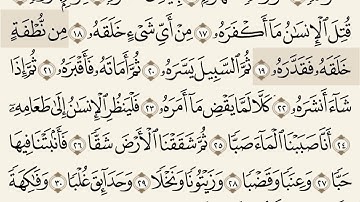 قُتِلَ ٱلْإِنسَٰنُ مَآ أَكْفَرَهُۥ ۝١٧ مِنْ أَىِّ شَىْءٍ خَلَقَهُۥ ۝١٨ مِن نُّطْفَةٍ
خَلَقَهُۥ فَقَدَّرَهُۥ ۝١٩ ثُمَّ ٱلسَّبِيلَ يَسَّرَهُۥ ۝٢٠ ثُمَّ أَمَاتَهُۥ فَأَقْبَرَهُۥ ۝٢١ ثُمَّ إِذَا
شَآءَ أَنشَرَهُۥ ۝٢٢ كَلَّا لَمَّا يَقْضِ مَآ أَمَرَهُۥ ۝٢٣ فَلْيَنظُرِ ٱلْإِنسَٰنُ إِلَىٰ طَعَامِهِۦٓ
۝٢٤ أَنَّا صَبَبْنَا ٱلْمَآءَ صَبًّا ۝٢٥ ثُمَّ شَقَقْنَا ٱلْأَرْضَ شَقًّا ۝٢٦ فَأَنۢبَتْنَا فِيهَا
حَبًّا ۝٢٧ وَعِنَبًا وَقَضْبًا ۝٢٨ وَزَيْتُونًا وَنَخْلًا ۝٢٩ وَحَدَآئِقَ غُلْبًا ۝٣٠ وَفَٰكِهَةً